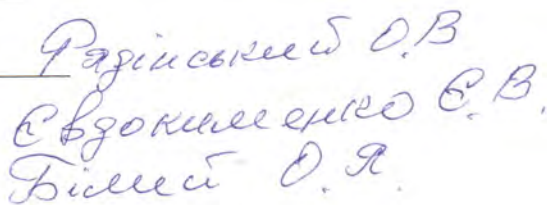 Радінський О.В
Євдокименко Є.В.
Білий О.Я.